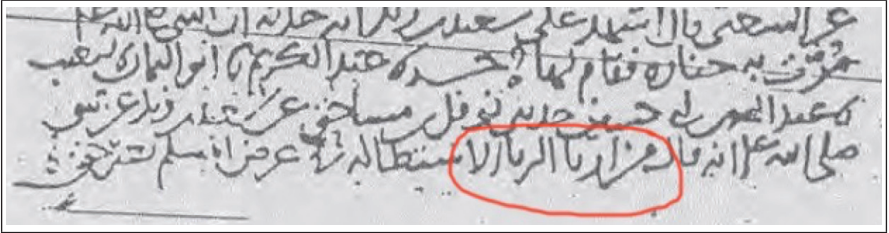 عن الشعبي قال اشهد على سعيد بن زيد انه حدثه ان النبي صلى الله علم
مرت به جنازه فقام لها عبد الكريم نا ابو اليمان شعيب
عبد الله بن ابي حسين حدثني نوفل بن مساحق عن سعيد بن زيد عن النبي
صلى الله علم انه قال من اربا الربا الاستطاله في عرض المسلم بغير حق